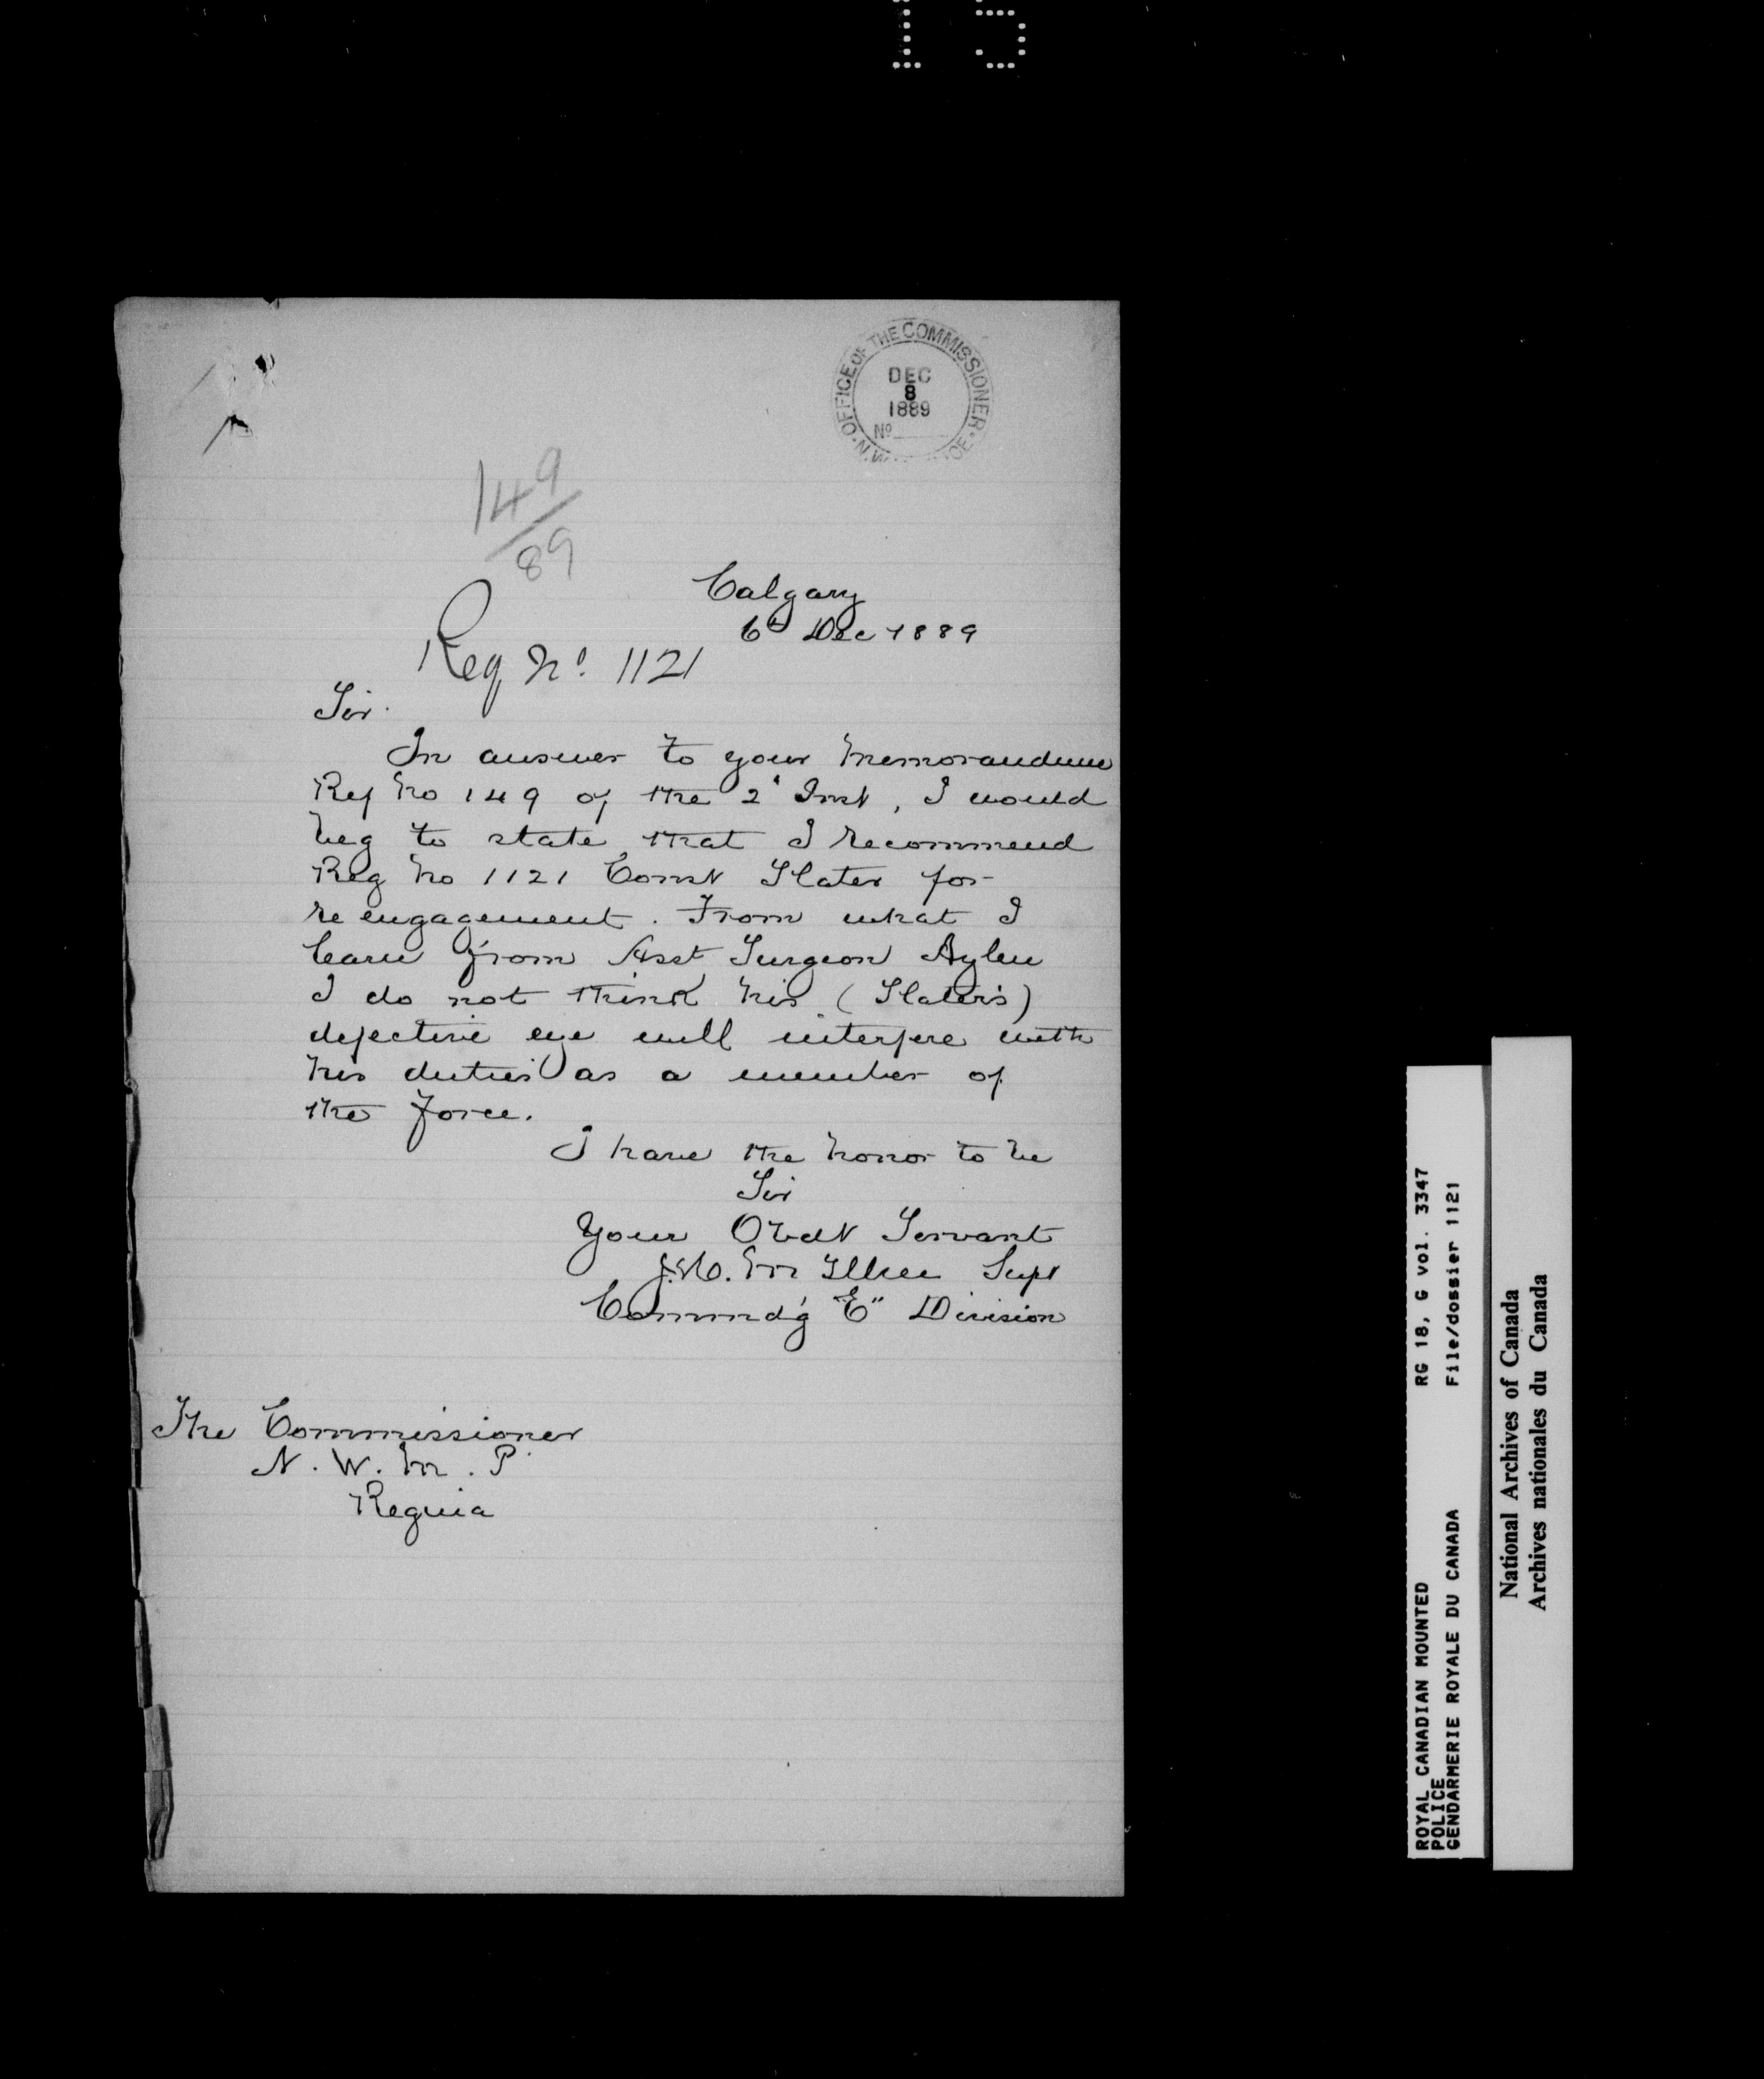 15
OFFICE OF THE COMMISSIONER
DEC
8
1889
No
149
89
Calgary
6th Dec 1889
Reg No. 1121
Sir.
In answer to your Memorandum
Ref No 149 of the 2' Inst, I would
beg to state that I recommend
Reg No 1121 Const Slater for
re engagement. From what I
learn from Asst Surgeon Aylen
I do not think his (Slater's)
defective eye will interfere with
his duties as a member of
the force.
I have the honor to be
Sir
Your Obedt Servant
Supt
Commd'g "E" Division
The Commissioner
N. W. M. P.
Regina
ROYAL CANADIAN MOUNTED RG 18, G vol. 3347
POLICE
GENDARMERIE ROYALE DU CANADA File/dossier 1121
National Archives of Canada
Archives nationales du Canada